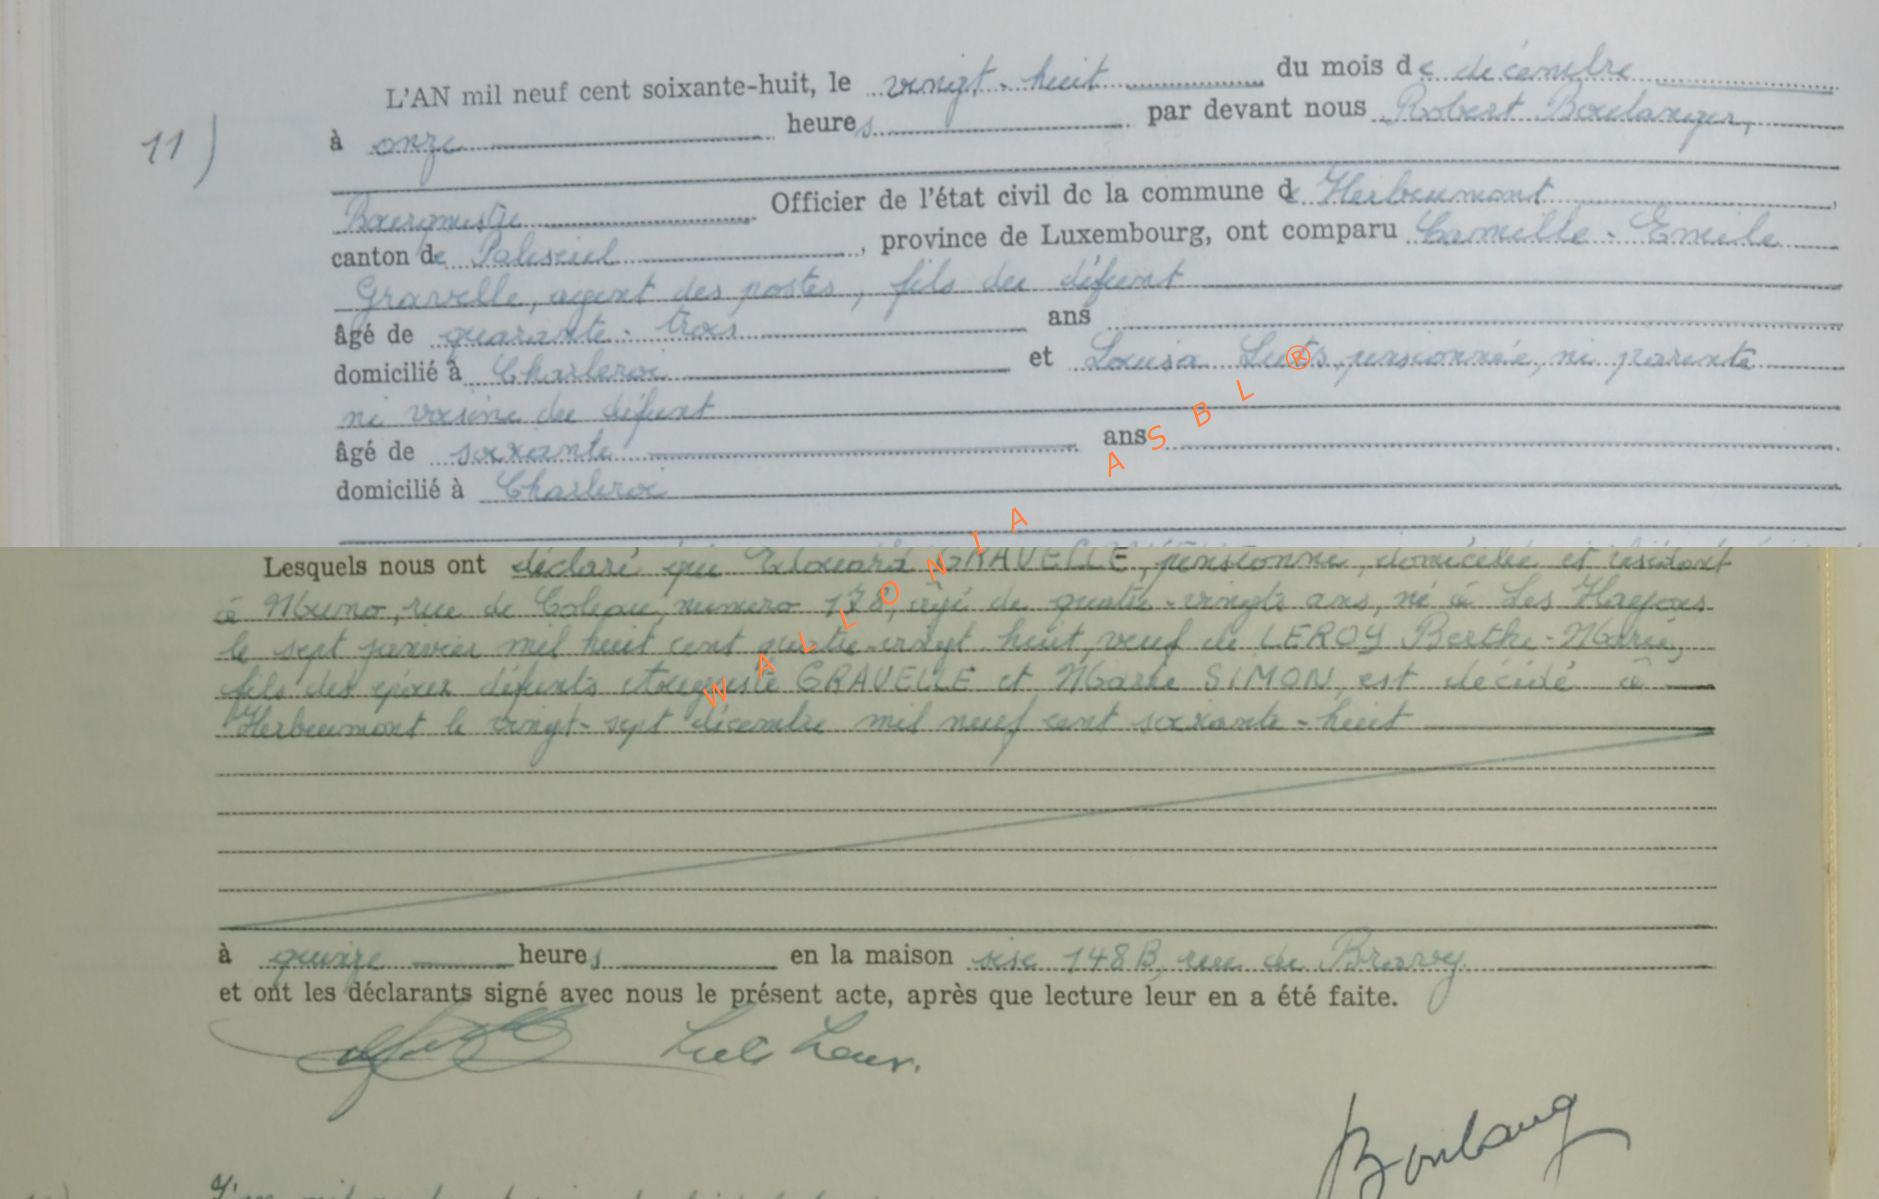 L'AN mil neuf cent soixante-huit, le vingt-huit du mois de décembre
11) à onze heures par devant nous Robert Boulanger,
Bourgmestre Officier de l'état civil de la commune de Herbeumont,
canton de Paliseul, province de Luxembourg, ont comparu Camille-Emile
Gravelle, agent des postes, fils du défunt
âgé de quarante-trois ans
domicilié à Charleroi et Louisa Luts, pensionnée, ni parente
ni voisine du défunt
âgé de soixante ans
domicilié à Charleroi
Lesquels nous ont déclaré que Edouard GRAVELLE, pensionné, domicilié et résidant
à Muno, rue de numéro 138, âgé de quatre-vingts ans, né à Les Hayons
le sept janvier mil huit cent quatre-vingt huit, veuf de LEROY Berthe-Marie,
fils des époux défunts Auguste GRAVELLE et Marie SIMON, est décédé à
Herbeumont le vingt-sept décembre mil neuf cent soixante-huit
à quinze heures en la maison sise 148B, rue du Bravy
et ont les déclarants signé avec nous le présent acte, après que lecture leur en a été faite.
Boulang
WALLONIA ASBL ®